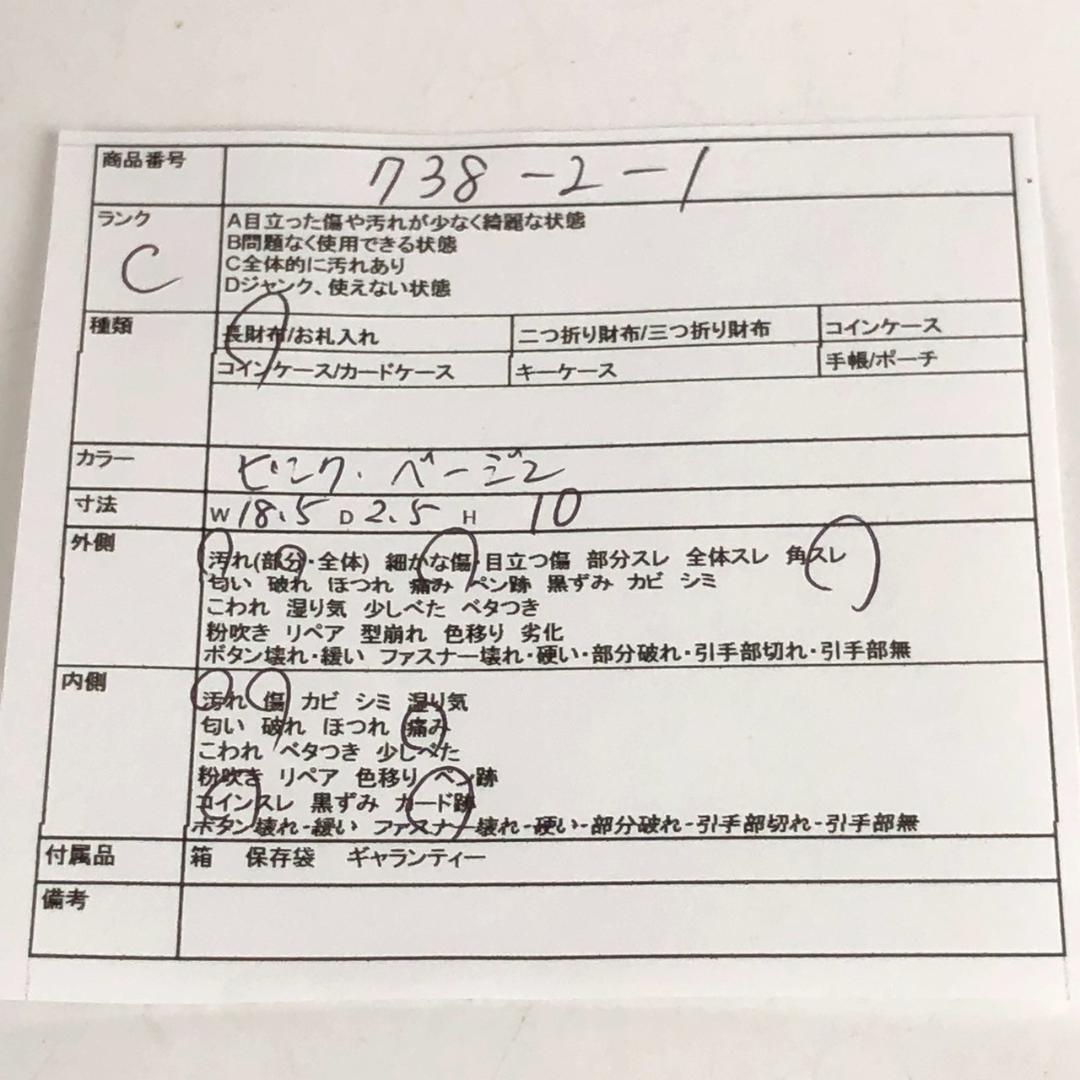 商品番号 738-2-1
ランク C
A目立った傷や汚れが少なく綺麗な状態
B問題なく使用できる状態
C全体的に汚れあり
Dジャンク、使えない状態
種類 長財布/お札入れ 二つ折り財布/三つ折り財布 コインケース
コインケース/カードケース キーケース 手帳/ポーチ
カラー ピンク・ベージュ
寸法 W 18.5 D 2.5 H 10
外側 汚れ(部分・全体) 細かな傷・目立つ傷 部分スレ 全体スレ 角スレ
匂い 破れ ほつれ 痛み ペン跡 黒ずみ カビ シミ
こわれ 湿り気 少しべた ベタつき
粉吹き リペア 型崩れ 色移り 劣化
ボタン壊れ・緩い ファスナー壊れ・硬い・部分破れ・引手部切れ・引手部無
内側 汚れ 傷 カビ シミ 湿り気
匂い 破れ ほつれ 痛み
こわれ ベタつき 少しべた
粉吹き リペア 色移り ペン跡
コインスレ 黒ずみ カード跡
ボタン壊れ-緩い ファスナー壊れ-硬い-部分破れ-引手部切れ-引手部無
付属品 箱 保存袋 ギャランティー
備考